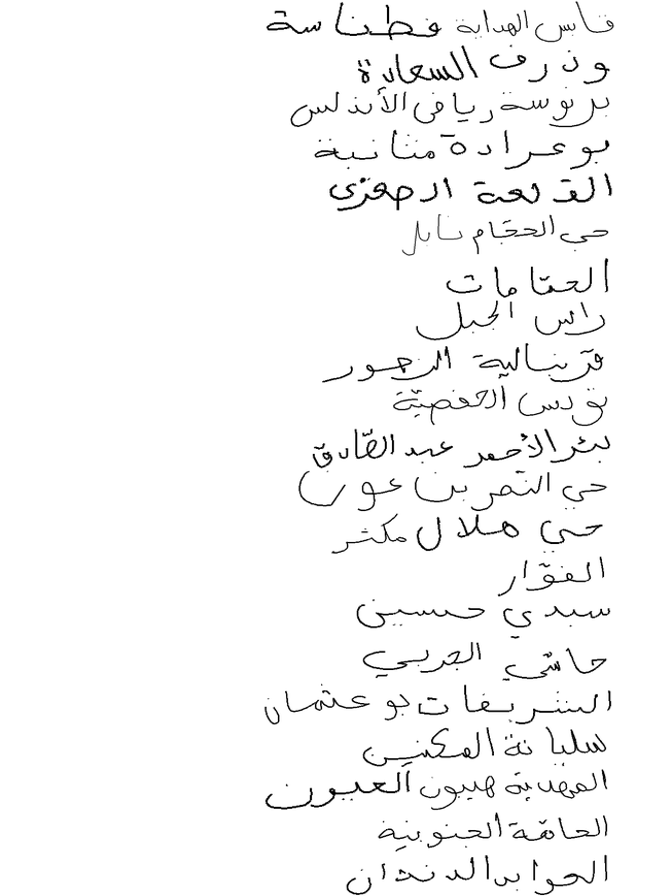 قابس الهداية فطناسة
وذرف السعادة
برنوسة رياض الأندلس
بوعرادة منانبة
القلعة الصغرى
حي الحجام نابل
الحمامات
راس الجبل
قرنبالية الرصور
تونس الحفصيّة
بئر الأحمر عبد الصّادق
حي النصر بن عون
حي هلال مكثر
الفوّار
سيدي حسين
حاشي الجربي
الشريفات بو عثمان
سليانة المكنين
المهدية هيبون العيون
الحامة الجنوبية
الحوايد الدندان